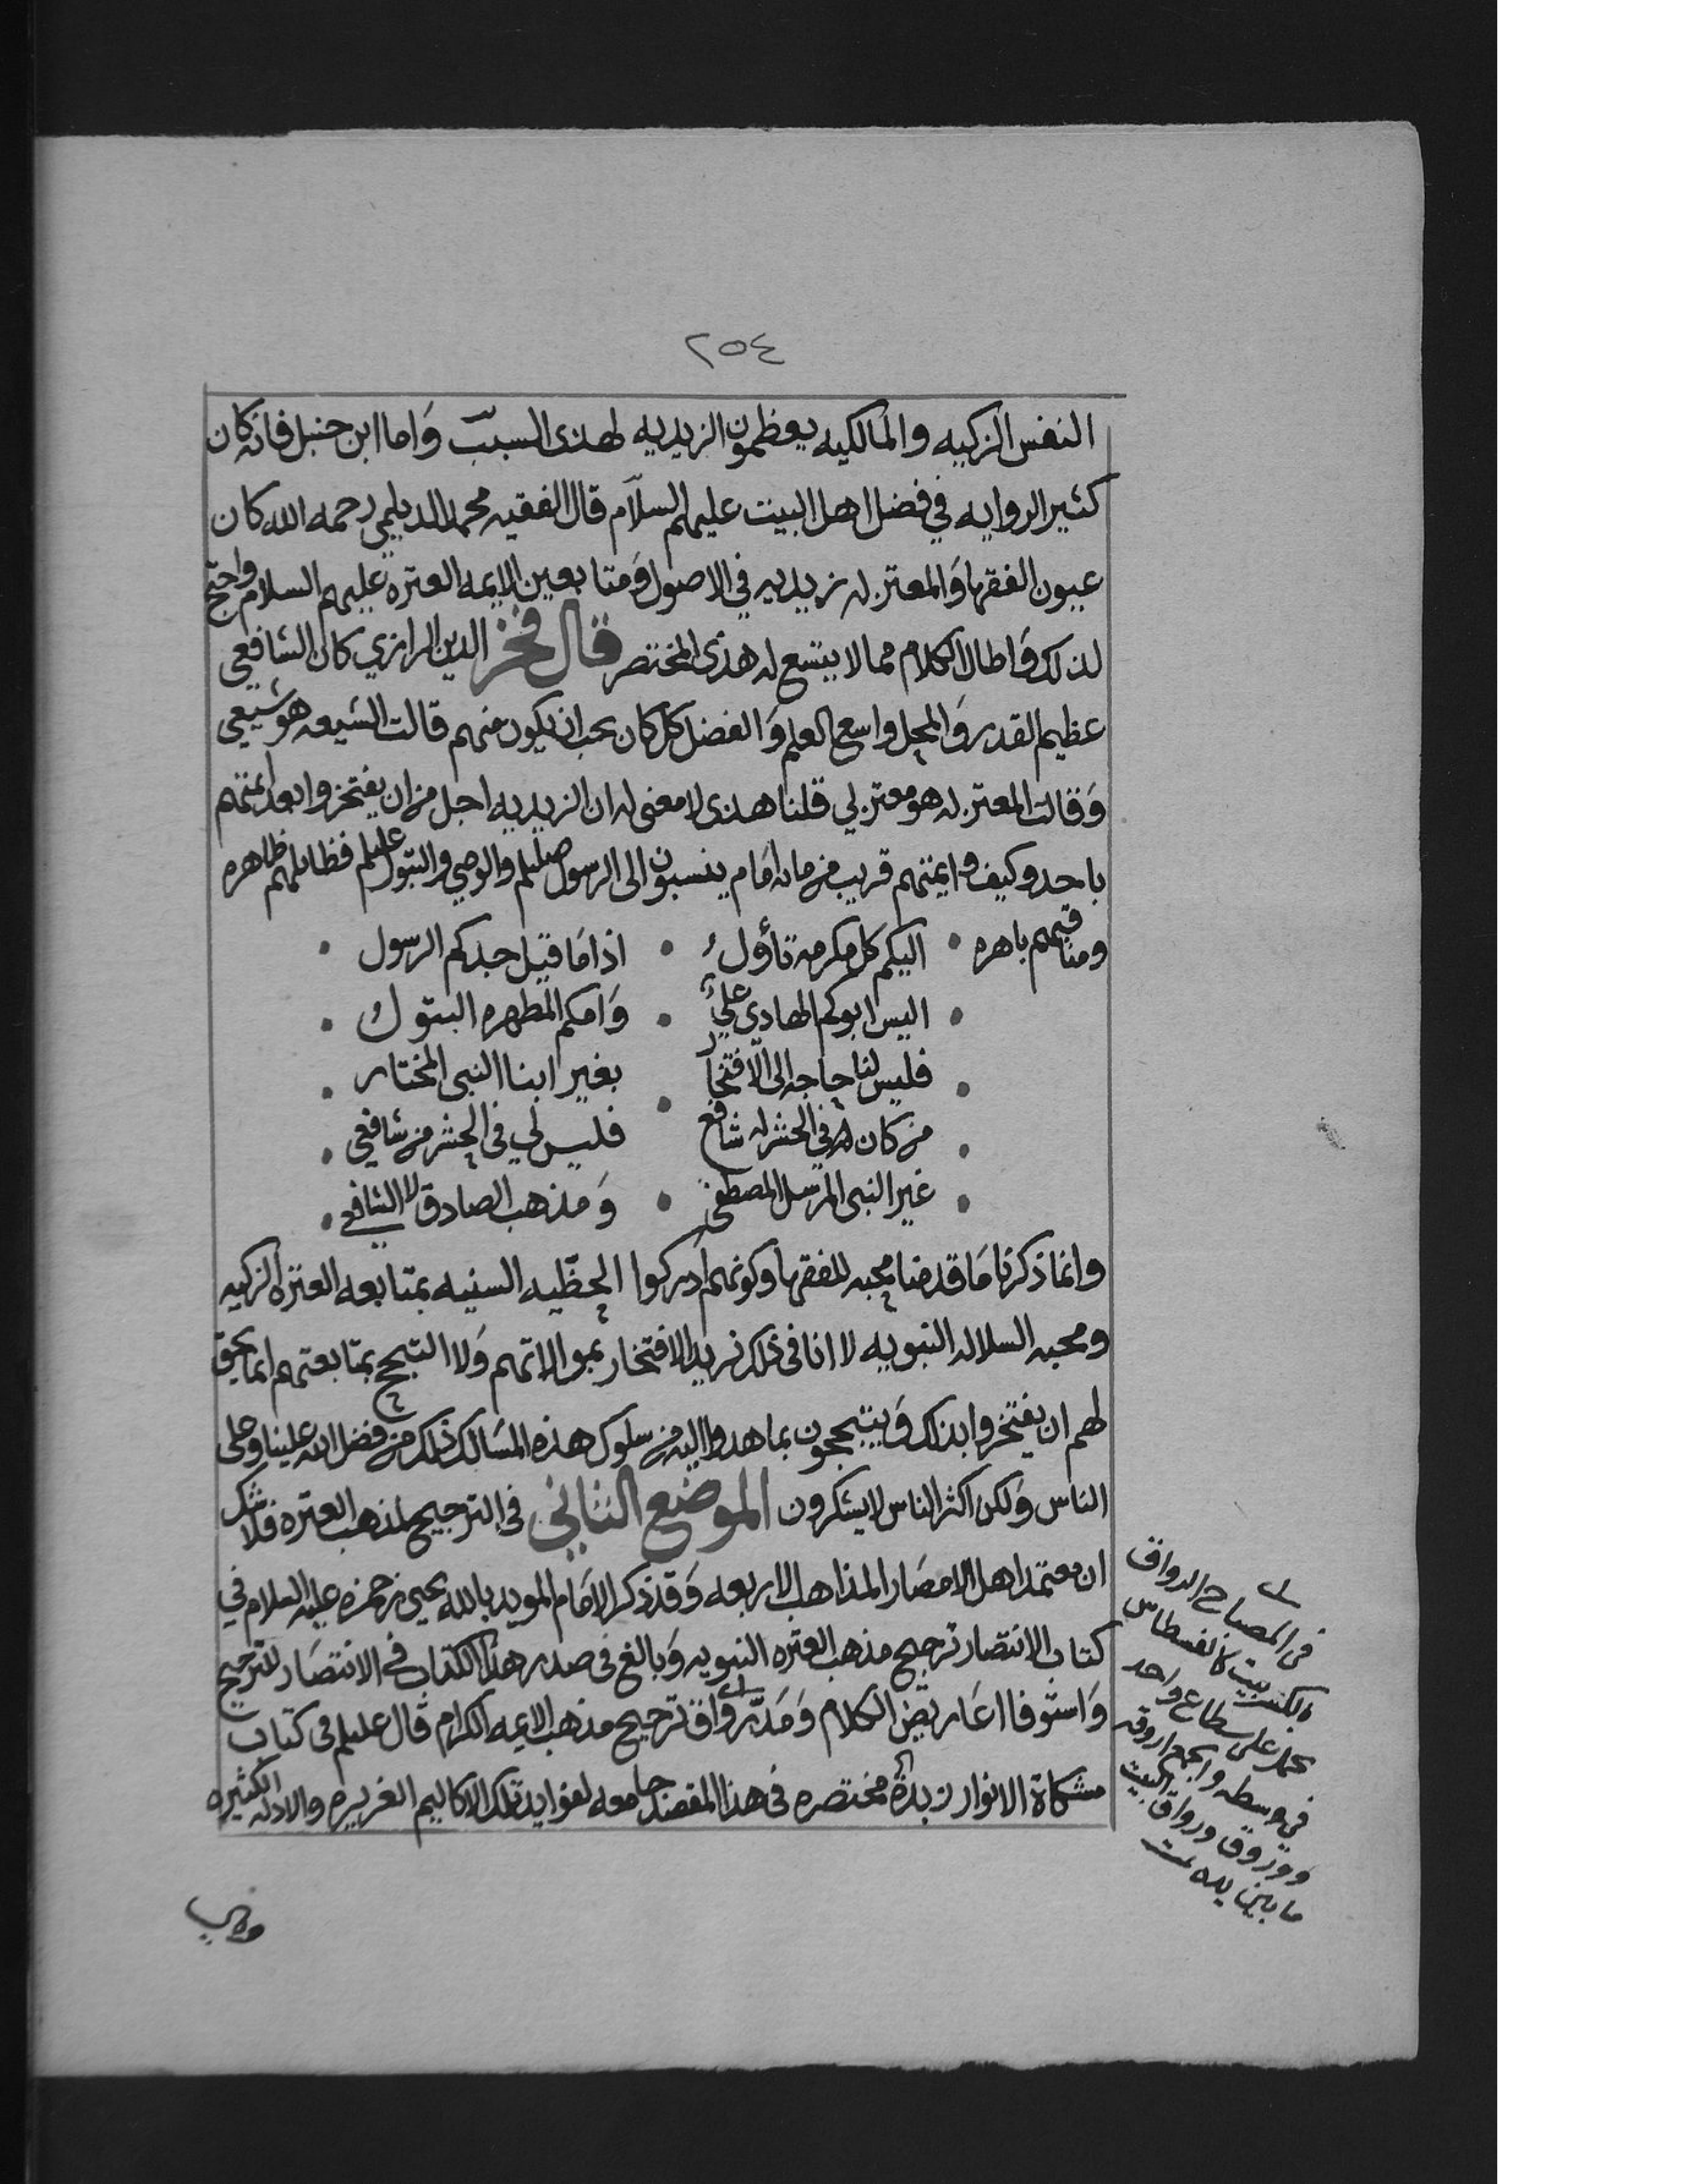 ٢٥٤
النفس الزكيه والمالكيه يعظمون الزيديه لهذى السبب وَاما ابن حنبل فانه كان
كثير الروايه في فضل اهل البيت عليهم السلام قال الفقيه محمد الديلمي رحمه الله كان
عيون الفقها وَالمعتزله زيديه في الاصول وَمتابعين الايمه العتره عليهم السلام واحتج
لذلك وَاطال الكلام مما لا يتسع له هذى المختصر قال فخر الدين الرازي كان الشافعي
عظيم القدر وَالمحل واسع العلم وَالفضل كل كان يحب ان يكون منهم قالت الشيعه هو شيعي
وَقالت المعتزله هو معتزلي قلنا هذى لا معنى له ان الزيديه اجل من ان يفتخروا بعد ايمتهم
باحد وكيف وايمتهم قريب من مائه امَام ينسبون الى الرسول صللم والوصي والبتول عليلم فظايلهم ظاهره
ومناقبهم باهره • اليكم كل مكرمه تأول • اذا مَا قيل جدكم الرسول •
• اليس ابوكم الهادي علي • وَامكم المطهره البتول •
• فليس لنا حاجه الى الافتخار • بغير ابنا النبى المختار •
• من كان له في الحشر له شافع • فليس لي في الحشر من شافعي •
• غير النبى المرسل المصطفى • وَمذهب الصادق لا الشافعي •
وانما ذكرنا مَا قدمنا محبه للفقها وكونهم ادركوا الحظيه السنيه بمتابعه العتره الزكيه
ومحبه السلاله النبويه لا انا فى ذلك نريد الافتخار بموالاتهم وَلا التبجح بمتابعتهم انما يحق
لهم ان يفتخروا بذلك وَيتبجحون بما هدوا اليه من سلوك هذه المسَالك ذلك من فضل الله علينا وعلى
الناس وَلكن اكثر الناس لا يشكرون الموضع الثاني في الترجيح لمذهب العتره فلا شك
ان معتمد اهل الامصَار المذاهب الاربعه وَقد ذكر الامَام المويد بالله يحيى بن حمزه عليه السلام في
كتاب الانتصار ترجيح مذهب العتره النبويه وَبالغ فى صدر هذا الكتاب في الانتصَار للترجيح
وَاستوفا اعَاريض الكلام وَمَدّ رواق ترجيح مذهب الايمه الكرام قال عليلم فى كتاب
مشكاة الانوار زبدة مختصره فى هذا المقصد جامعه لفوايد تلك الاكاليم الغريره والادله الكثيره
في المصباح الرواق
بالكسر بيت كالفسطاس
يحمل على سطاع واحد
في وسطه والجمع اروقه
وروق ورواق البيت
ما بين يديه تمت